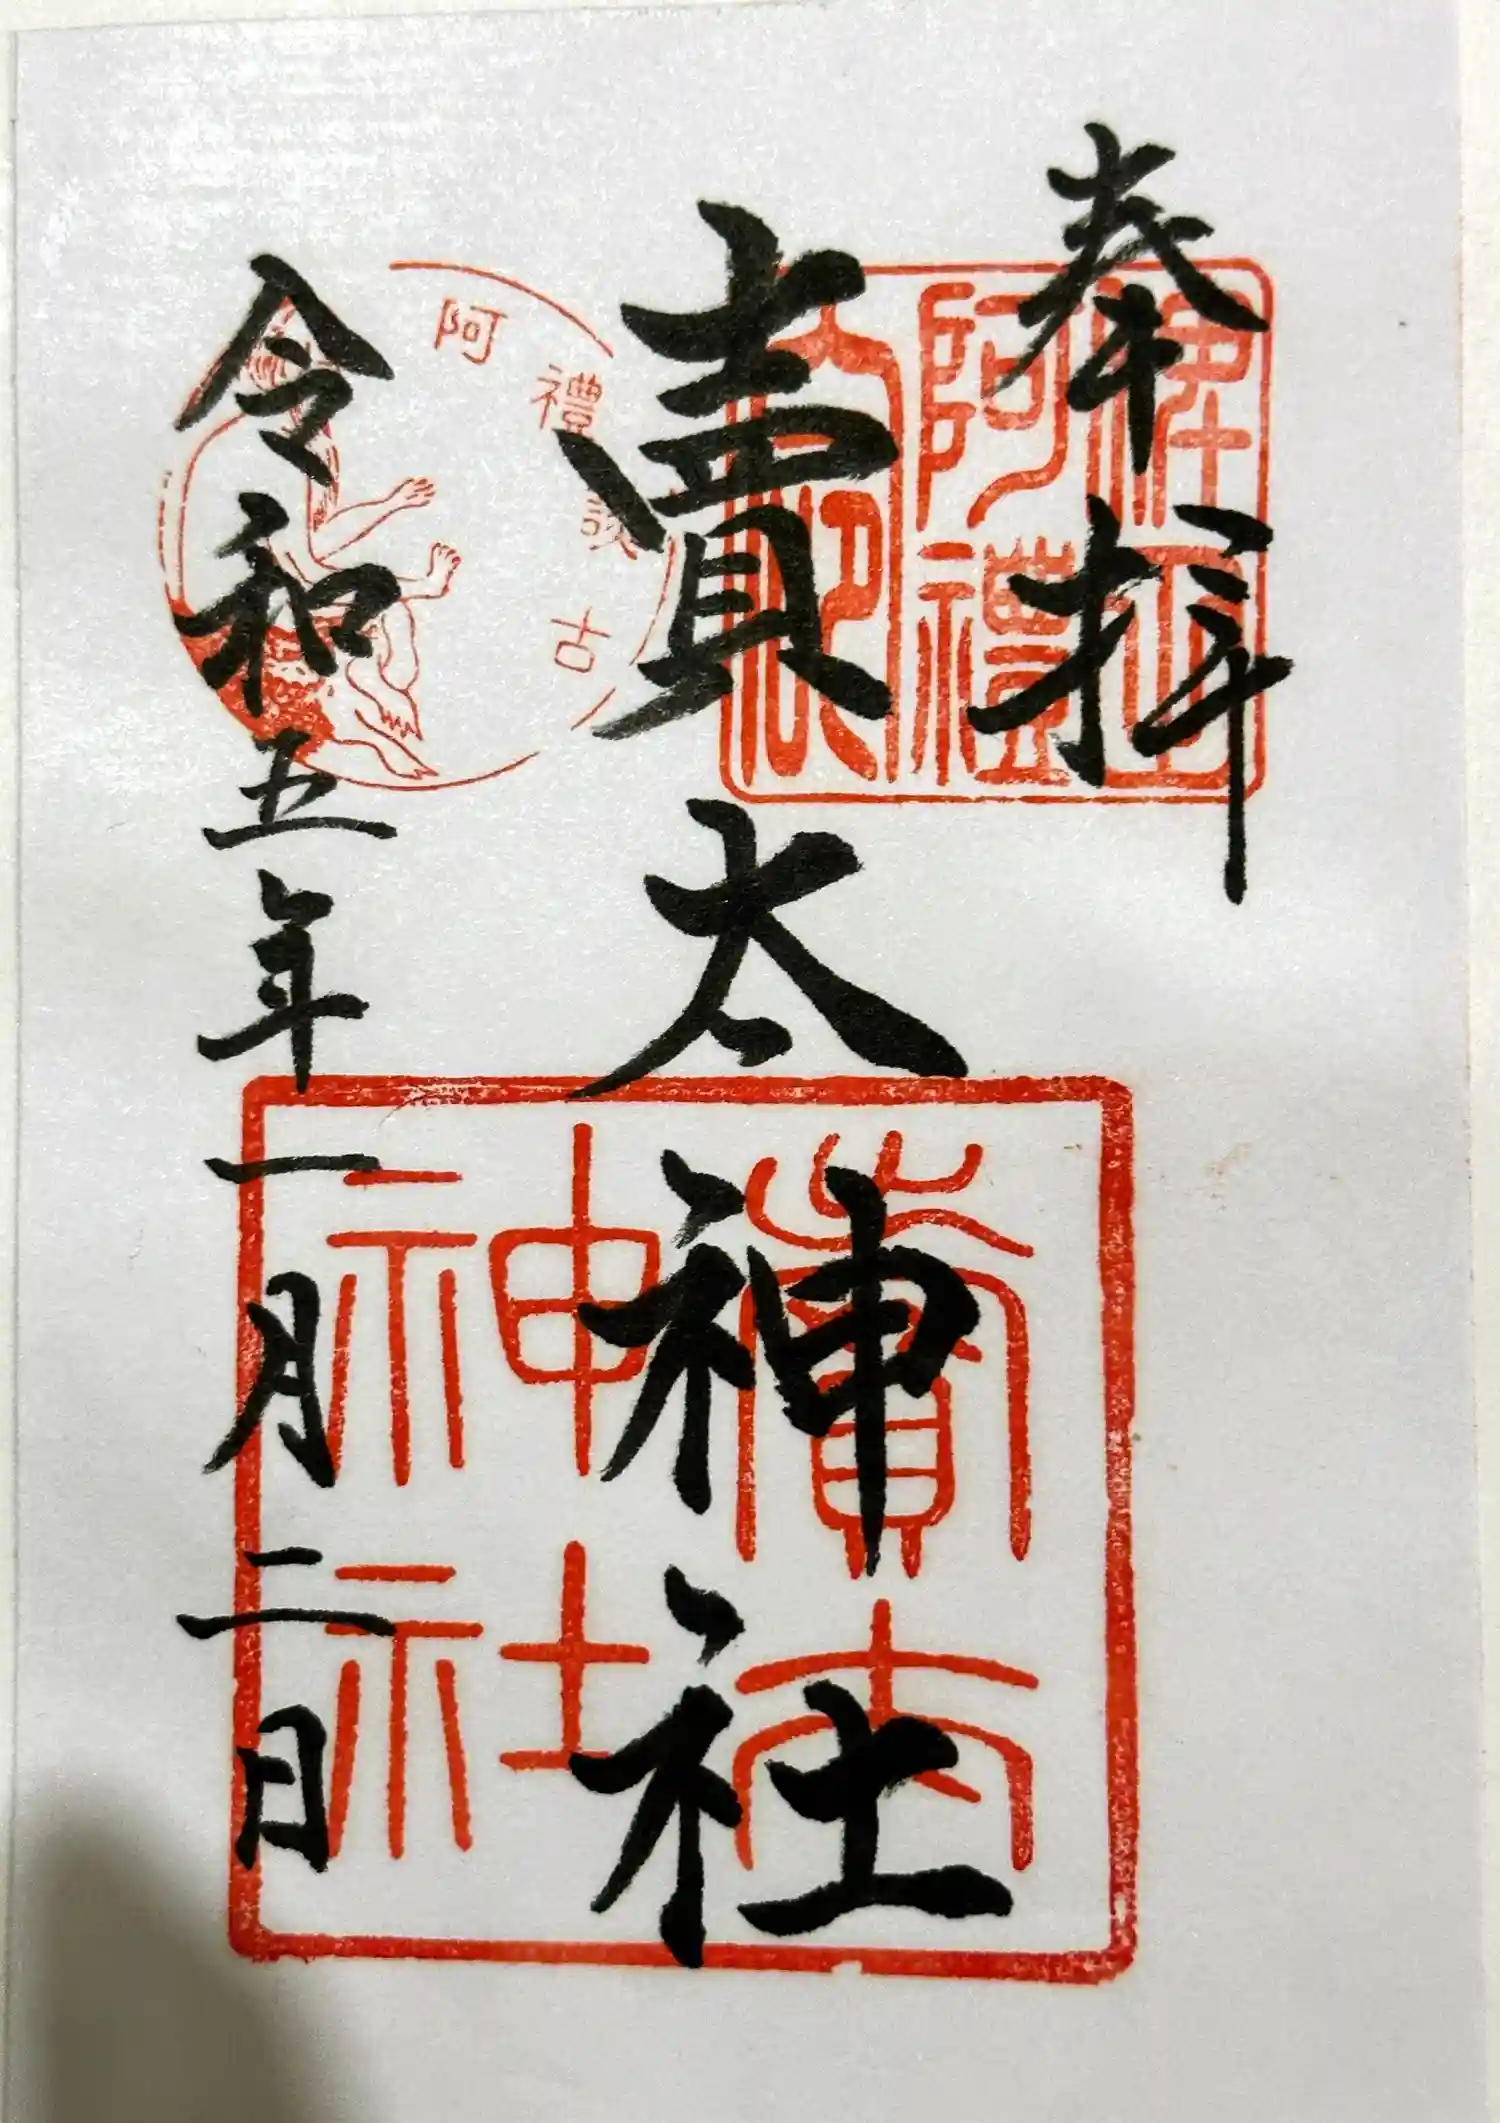 奉拝
賣太神社
令和五年一月二日
阿禮
阿禮談古
神社